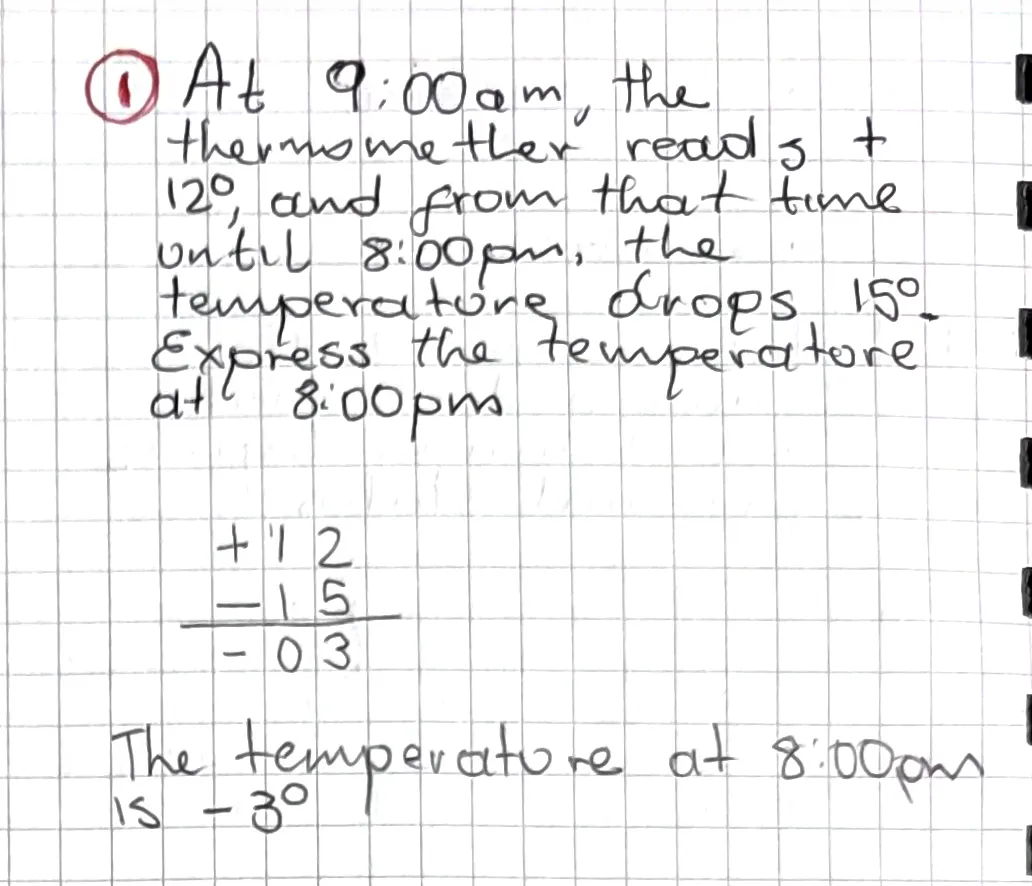 1 At 9:00am, the
thermomether reads +
12°, and from that time
until 8:00pm, the
temperature drops 15°.
Express the temperature
at 8:00pm
+12
-15
-03
The temperature at 8:00pm
is -3°